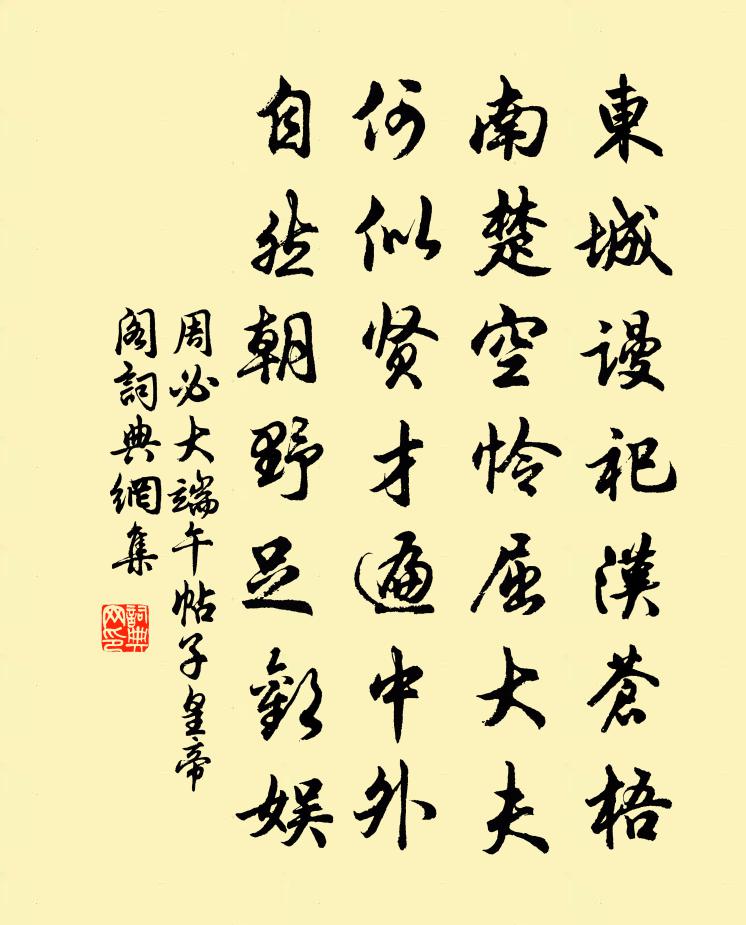 東城謾祀漢蒼梧
南楚空怜屈大夫
何似贤才遍中外
自然朝野足歡娱
周必大端午帖子皇帝
阁詞典網集
詞典网印